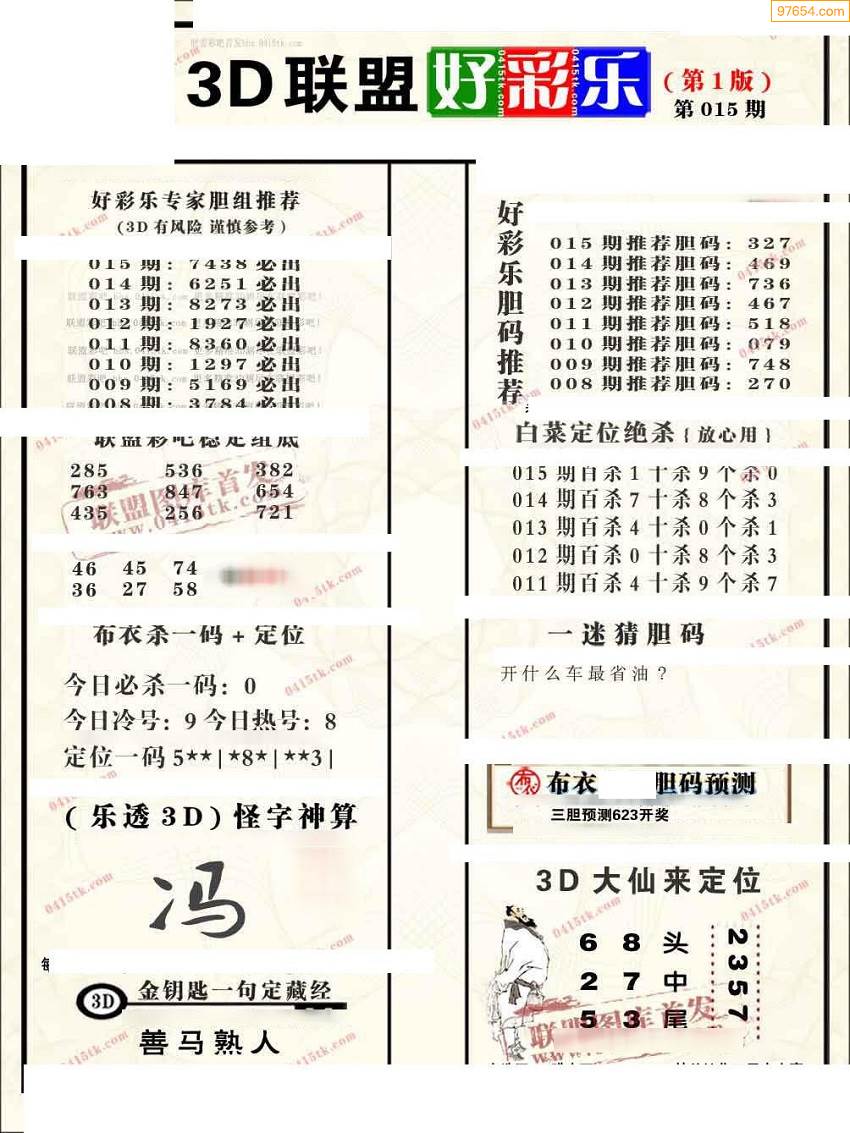 97654.com
3D联盟好彩乐
(第1版)
第015期
好彩乐专家胆组推荐
(3D有风险 谨慎参考)
015期: 7438必出
014期: 6251必出
013期: 8273必出
012期: 1927必出
011期: 8360必出
010期: 1297必出
009期: 5169必出
008期: 3784必出
联盟彩吧稳定组底
285 536 382
763 847 654
435 256 721
46 45 74
36 27 58
布衣杀一码+定位
今日必杀一码: 0
今日冷号: 9 今日热号: 8
定位一码5**|*8*|**3|
(乐透3D)怪字神算
冯
3D 金钥匙一句定藏经
善马熟人
好彩乐胆码推荐
015期推荐胆码: 327
014期推荐胆码: 469
013期推荐胆码: 736
012期推荐胆码: 467
011期推荐胆码: 518
010期推荐胆码: 079
009期推荐胆码: 748
008期推荐胆码: 270
白菜定位绝杀{放心用}
015期百杀1十杀9个杀0
014期百杀7十杀8个杀3
013期百杀4十杀0个杀1
012期百杀0十杀8个杀3
011期百杀4十杀9个杀7
一迷猜胆码
开什么车最省油?
布衣 布衣 胆码预测
三胆预测623开奖
3D大仙来定位
6 8 头
2 7 中
5 3 尾
2357
联盟图库首发
www.0415tk.com
0415tk.com